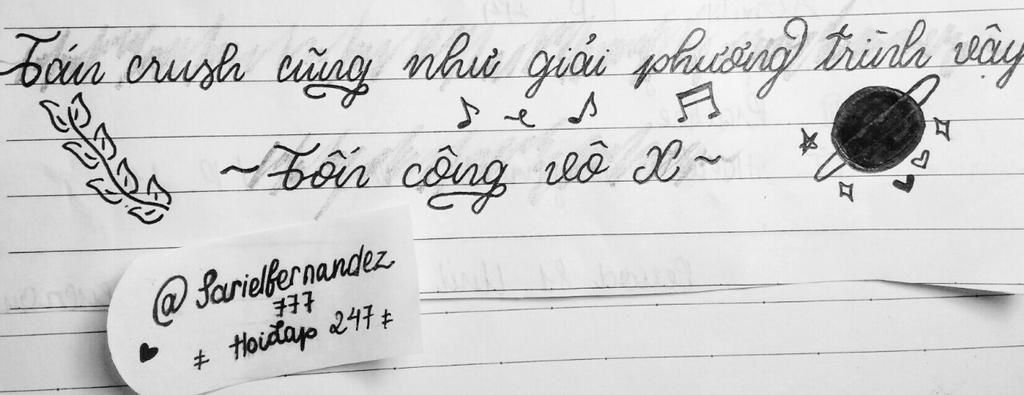 Tán crush cũng như giải phương trình vậy
~ Tốn công vô X ~
@Sarielfernandez
777
≠ Hoidap 247 ≠